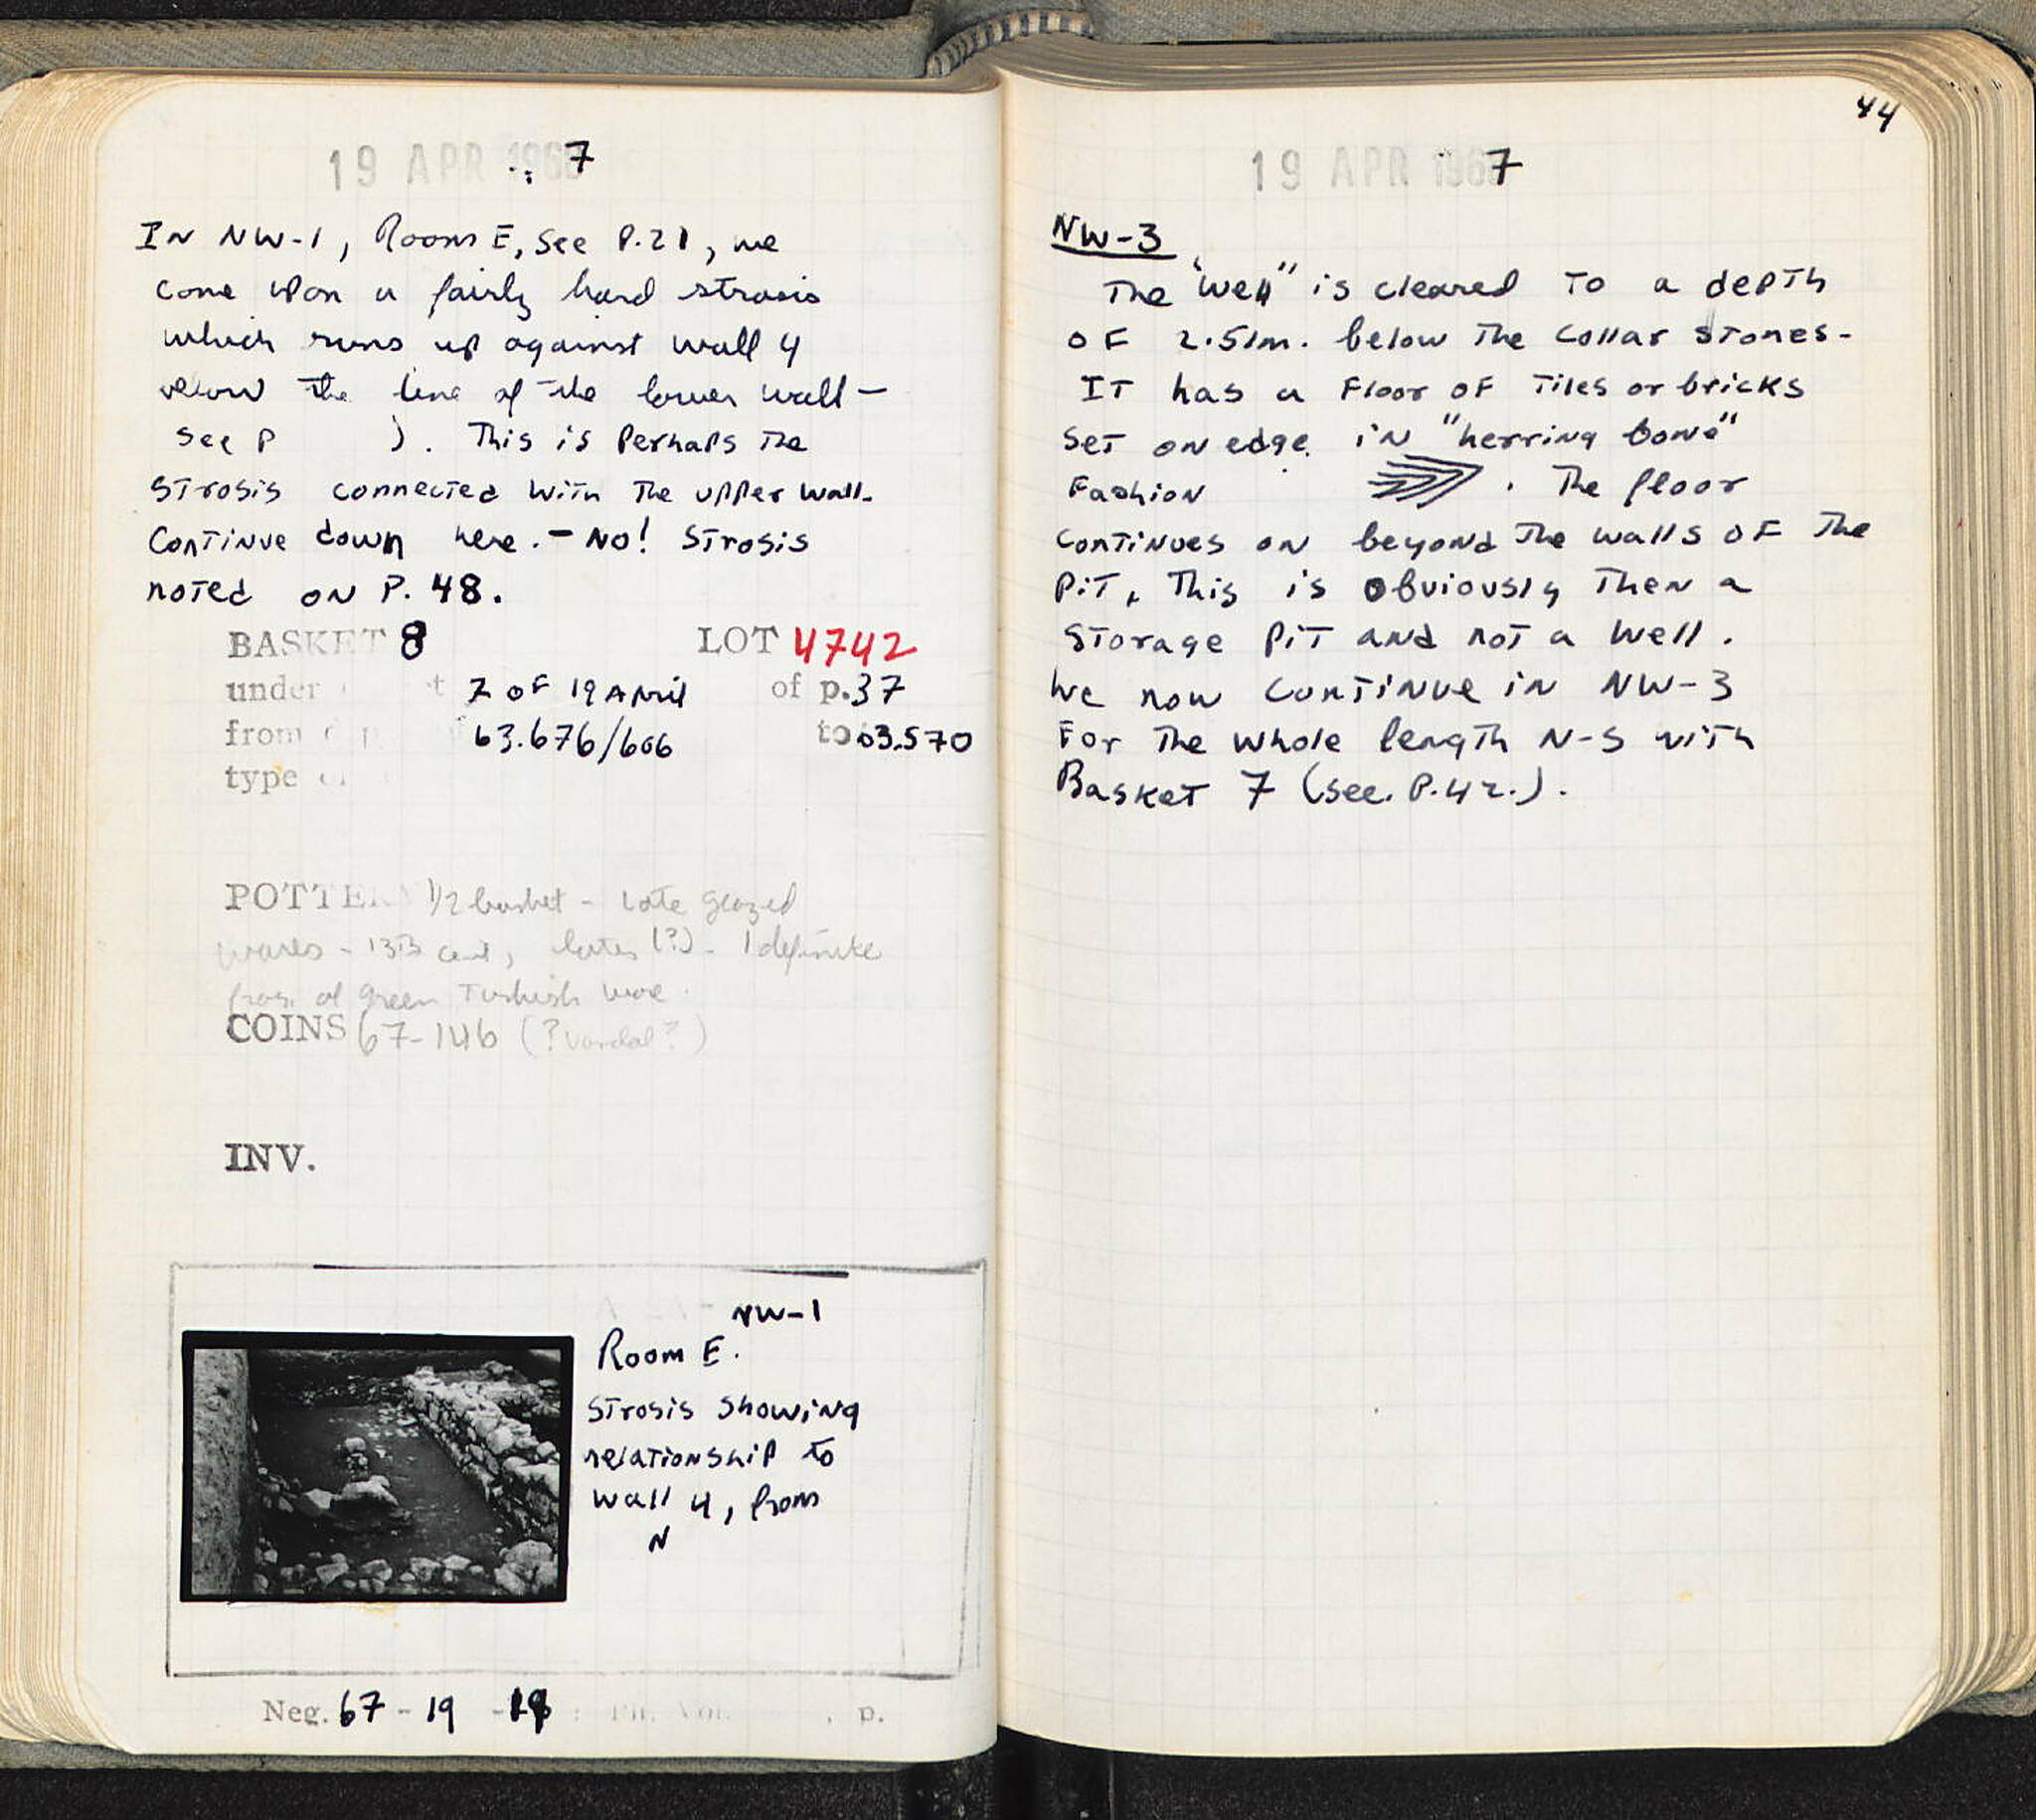 19 APR 1967
In NW-1, Room E, see P.21, we
come upon a fairly hard strosis
which runs up against wall 4
below the line of the lower wall—
see P ). This is perhaps the
strosis connected with the upper wall.
Continue down here. — No! Strosis
noted on P. 48.
BASKET 8 LOT 4742
under 7 of 19 April of p. 37
from 63.676/606 to 63.570
type
POTTERY 1/2 basket - Late glazed
wares - 13th cent, later (?) - 1 definite
frag. of green Turkish ware.
COINS 67-146 (? Vandal?)
INV.
NW-1
Room E.
Strosis showing
relationship to
wall 4, from
N
Neg. 67 - 19 - : Ph. Vol. , p.
44
19 APR 1967
NW-3
The "well" is cleared to a depth
of 2.51m. below the collar stones-
It has a floor of tiles or bricks
set on edge in "herring bone"
Fashion . The floor
continues on beyond the walls of the
pit, This is obviously then a
storage pit and not a well.
We now continue in NW-3
For the whole length N-S with
Basket 7 (see. P.42.).